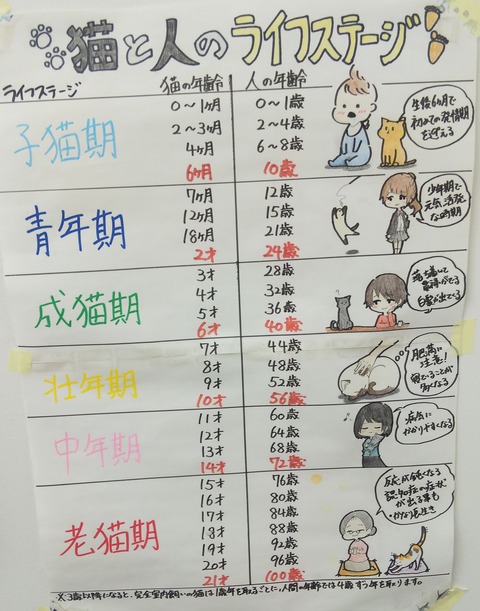 猫と人のライフステージ!
ライフステージ 猫の年齢 人の年齢
子猫期
0〜1ヶ月 0〜1歳
2〜3ヶ月 2〜4歳
4ヶ月 6〜8歳
6ヶ月 10歳
生後6ヶ月で
初めての発情期
を迎える
青年期
7ヶ月 12歳
12ヶ月 15歳
18ヶ月 21歳
2才 24歳
少年期で
元気、活発
な時期
成猫期
3才 28歳
4才 32歳
5才 36歳
6才 40歳
落ち着いて
がでる
が出てくる
壮年期
7才 44歳
8才 48歳
9才 52歳
10才 56歳
肥満に
注意!
寝ていることが
多くなる
中年期
11才 60歳
12才 64歳
13才 68歳
14才 72歳
病気に
かかりやすくなる
老猫期
15才 76歳
16才 80歳
17才 84歳
18才 88歳
19才 92歳
20才 96歳
21才 100歳
反応が鈍くなる
認知症の症状
が出る事も
・かなり長生き
※3歳以降になると、完全室内飼いの猫は1歳年を取るごとに、人間の年齢では4歳ずつ年を取ります。